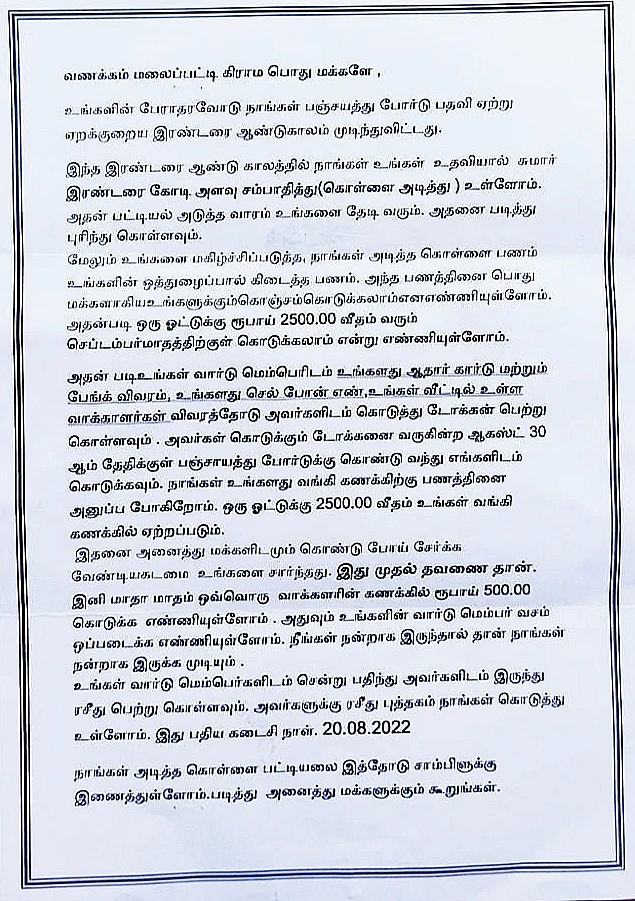 வணக்கம் மலைப்பட்டி கிராம பொது மக்களே ,
உங்களின் பேராதரவோடு நாங்கள் பஞ்சயத்து போர்டு பதவி ஏற்று
ஏறக்குறைய இரண்டரை ஆண்டுகாலம் முடிந்துவிட்டது.
இந்த இரண்டரை ஆண்டு காலத்தில் நாங்கள் உங்கள் உதவியால் சுமார்
இரண்டரை கோடி அளவு சம்பாதித்து(கொள்ளை அடித்து ) உள்ளோம்.
அதன் பட்டியல் அடுத்த வாரம் உங்களை தேடி வரும். அதனை படித்து
புரிந்து கொள்ளவும்.
மேலும் உங்களை மகிழ்ச்சிப்படுத்த, நாங்கள் அடித்த கொள்ளை பணம்
உங்களின் ஒத்துழைப்பால் கிடைத்த பணம். அந்த பணத்தினை பொது
மக்களாகியஉங்களுக்கும்கொஞ்சம்கொடுக்கலாம்எனஎண்ணியுள்ளோம்.
அதன்படி ஒரு ஓட்டுக்கு ரூபாய் 2500.00 வீதம் வரும்
செப்டம்பர்மாதத்திற்குள் கொடுக்கலாம் என்று எண்ணியுள்ளோம்.
அதன் படிஉங்கள் வார்டு மெம்பெரிடம் உங்களது ஆதார் கார்டு மற்றும்
பேங்க் விவரம், உங்களது செல் போன் எண்,உங்கள் வீட்டில் உள்ள
வாக்காளர்கள் விவரத்தோடு அவர்களிடம் கொடுத்து டோக்கன் பெற்று
கொள்ளவும் . அவர்கள் கொடுக்கும் டோக்கனை வருகின்ற ஆகஸ்ட் 30
ஆம் தேதிக்குள் பஞ்சாயத்து போர்டுக்கு கொண்டு வந்து எங்களிடம்
கொடுக்கவும். நாங்கள் உங்களது வங்கி கணக்கிற்கு பணத்தினை
அனுப்ப போகிறோம். ஒரு ஓட்டுக்கு 2500.00 வீதம் உங்கள் வங்கி
கணக்கில் ஏற்றப்படும்.
இதனை அனைத்து மக்களிடமும் கொண்டு போய் சேர்க்க
வேண்டியகடமை உங்களை சார்ந்தது. இது முதல் தவணை தான்.
இனி மாதா மாதம் ஒவ்வொரு வாக்களரின் கணக்கில் ரூபாய் 500.00
கொடுக்க எண்ணியுள்ளோம் . அதுவும் உங்களின் வார்டு மெம்பர் வசம்
ஒப்படைக்க எண்ணியுள்ளோம். நீங்கள் நன்றாக இருந்தால் தான் நாங்கள்
நன்றாக இருக்க முடியும் .
உங்கள் வார்டு மெம்பெர்களிடம் சென்று பதிந்து அவர்களிடம் இருந்து
ரசீது பெற்று கொள்ளவும். அவர்களுக்கு ரசீது புத்தகம் நாங்கள் கொடுத்து
உள்ளோம். இது பதிய கடைசி நாள். 20.08.2022
நாங்கள் அடித்த கொள்ளை பட்டியலை இத்தோடு சாம்பிளுக்கு
இணைத்துள்ளோம்.படித்து அனைத்து மக்களுக்கும் கூறுங்கள்.